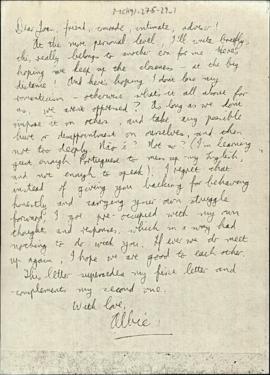 Dear Joan, friend, comrade, intimate, adviser!
At the more personal level, I'll write briefly,
this really belongs to another era for me. Here's
hoping we keep up the closeness – at the big
distance! And here's hoping I don't lose my
romanticism – otherwise what's it all about for
us, we aren't oppressed? As long as we don't
impose it on others, and take any possible
hurt or disappointment on ourselves, and then
not too deeply. Não é? Not so? (I'm learning
just enough Portuguese to mess up my English,
and not enough to speak). I regret that
instead of giving you backing for behaving
honestly and carrying your own struggle
forward, I got pre-occupied with my own
thought and responses, which in a way had
nothing to do with you. If ever we do meet
up again, I hope we are good to each other.
This letter supersedes my first letter and
complements my second one.
With love,
Albie